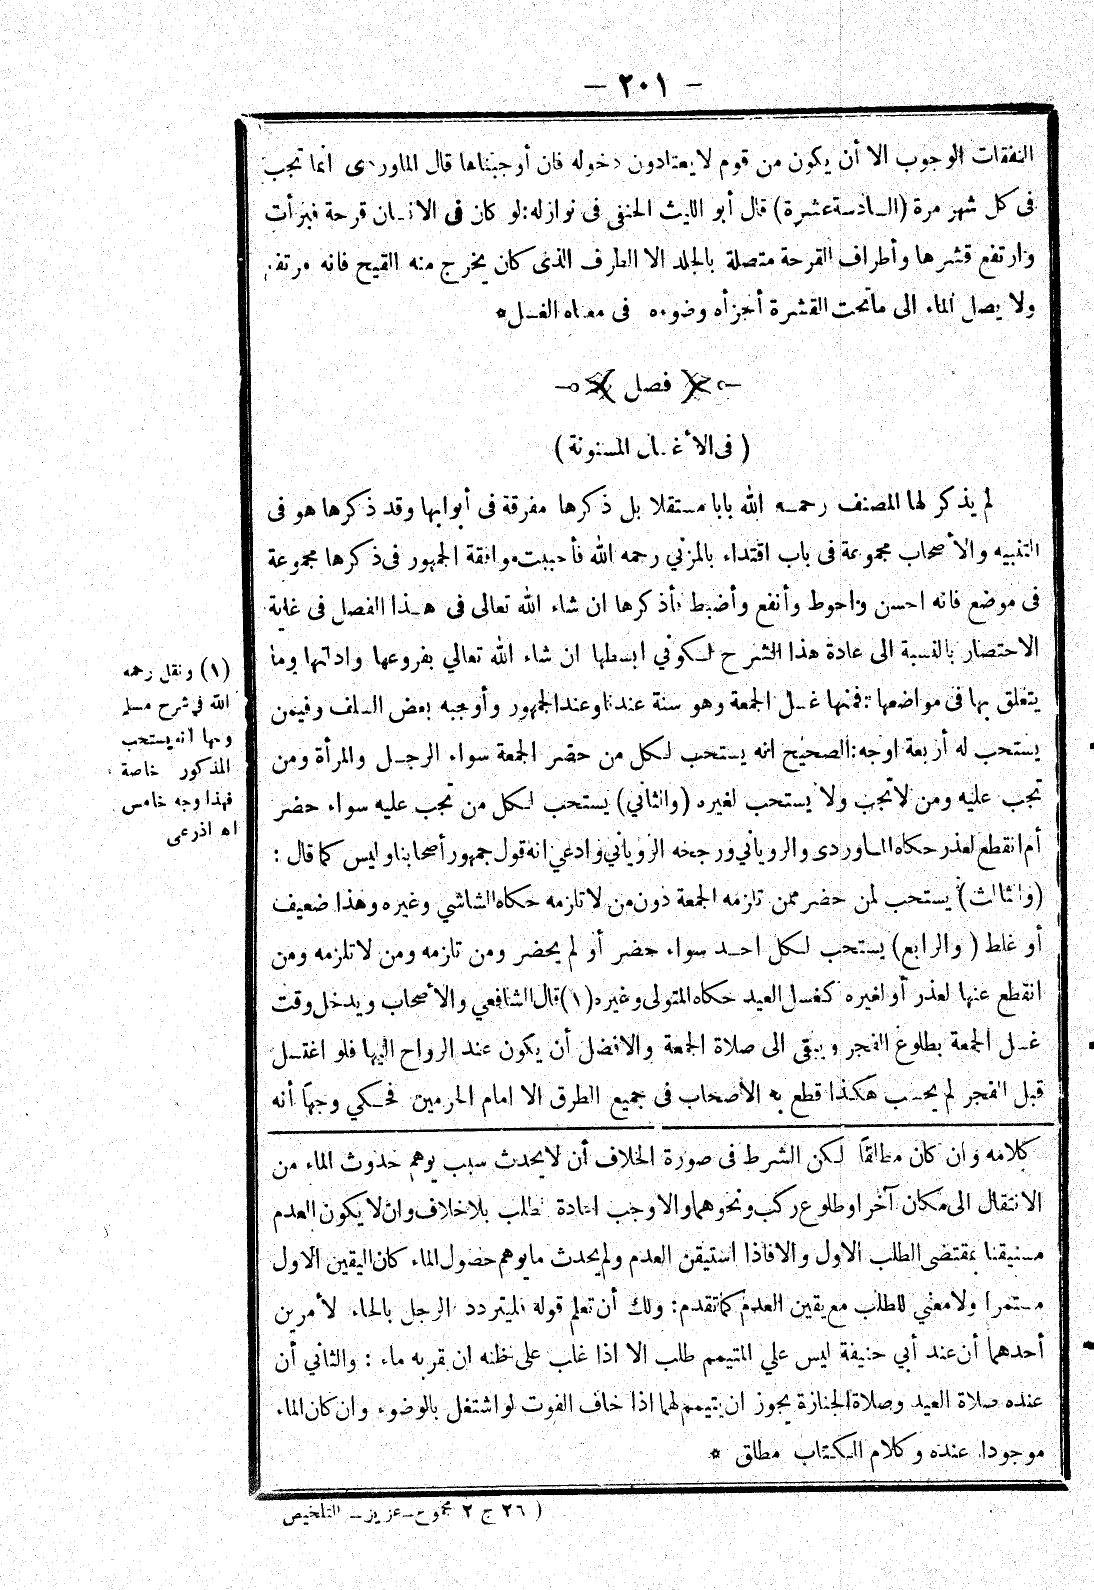 — ٢٠١ —
النفقات الوجوب الا أن يكون من قوم لا يعتادون دخوله فان أوجبناها قال الماوردى انما تجب
فى كل شهر مرة (السادسة عشرة) قال أبو الليث الحنفى فى نوازله: لو كان فى الانسان قرحة فبرأت
وارتفع قشرها وأطراف القرحة متصلة بالجلد الا الطرف الذى كان يخرج منه القيح فانه مرتفع
ولا يصل الماء الى ماتحت القشرة أجزأه وضوءه فى معناه الغسل *
فصل
( فى الأغسال المسنونة )
لم يذكر لها المصنف رحمه الله بابا مستقلا بل ذكرها مفرقة فى أبوابها وقد ذكرها هو فى
التنبيه والأصحاب مجموعة فى باب اقتداء بالمزني رحمه الله فأحببت موافقة الجمهور فى ذكرها مجموعة
فى موضع فانه احسن واحوط وأنفع وأضبط فأذكرها ان شاء الله تعالى فى هذا الفصل فى غاية
الاختصار بالنسبة الى عادة هذا الشرح لكوني ابسطها ان شاء الله تعالي بفروعها وادلتها وما
يتعلق بها فى مواضعها: فمنها غسل الجمعة وهو سنة عندنا وعند الجمهور وأوجبه بعض السلف وفيمن
يستحب له أربعة اوجه: الصحيح انه يستحب لكل من حضر الجمعة سواء الرجل والمرأة ومن
تجب عليه ومن لاتجب ولا يستحب لغيره (والثاني) يستحب لكل من تجب عليه سواء حضر
أم انقطع لعذر حكاه الماوردى والروياني ورجحه الروياني وادعي انه قول جمهور أصحابنا وليس كما قال :
(والثالث) يستحب لمن حضر ممن تلزمه الجمعة دون من لا تلزمه حكاه الشاشي وغيره وهذا ضعيف
أو غلط ( والرابع) يستحب لكل احد سواء حضر أو لم يحضر ومن تلزمه ومن لا تلزمه ومن
انقطع عنها لعذر أو لغيره كغسل العيد حكاه المتولى وغيره (١) قال الشافعي والأصحاب ويدخل وقت
غسل الجمعة بطلوع الفجر ويبقى الى صلاة الجمعة والافضل أن يكون عند الرواح اليها فلو اغتسل
قبل الفجر لم يحسب هكذا قطع به الأصحاب فى جميع الطرق الا امام الحرمين فحكي وجها أنه
(١) ونقل رحمه
الله في شرح مسلم
وجها انه يستحب
المذكور خاصة
فهذا وجه خامس
اه اذرعى
كلامه وان كان مطلقا لكن الشرط فى صورة الخلاف أن لا يحدث سبب يوهم حدوث الماء من
الانتقال الى مكان آخر او طلوع ركب ونحوهما والا وجب اعادة الطلب بلا خلاف وان لا يكون العدم
مستيقنا بمقتضى الطلب الاول والا فاذا استيقن العدم ولم يحدث ما يوهم حصول الماء كان اليقين الاول
مستمرا ولا معني للطلب مع يقين العدم كما تقدم: ولك أن تعلم قوله فليتردد الرجل بالحاء لأمرين
أحدهما أن عند أبي حنيفة ليس علي المتيمم طلب الا اذا غلب على ظنه ان قربه ماء : والثاني أن
عنده صلاة العيد وصلاة الجنازة يجوز ان يتيمم لهما اذا خاف الفوت لو اشتغل بالوضوء وان كان الماء
موجودا عنده وكلام الكتاب مطلق *
( ٢٦ ج ٢ مجموع - عزيز - التلخيص